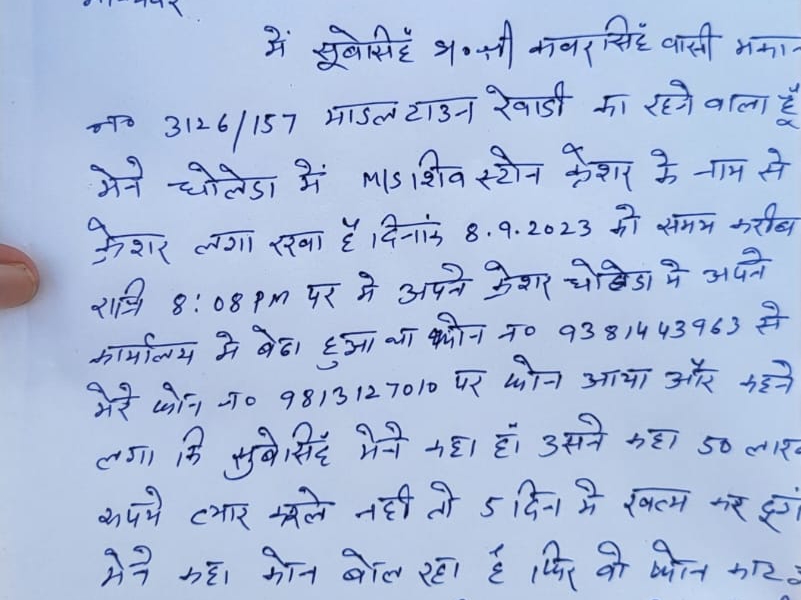 मान्यवर
में सूबेसिहँ श्री कवरसिहँ वासी मकान
न० 3126/157 माडल टाउन रेवाडी का रहने वाला हूँ
मेने धोलेडा में M/S शिव स्टोन क्रेशर के नाम से
क्रेशर लगा रखा हैं । दिनांक 8.9.2023 को समय करीब
रात्रि 8:08 PM पर मे अपने क्रेशर धोलेडा मे अपने
कार्यालय मे बेठा हुआ था फोन न० 9381443963 से
मेरे फोन न० 9813127010 पर फोन आया और कहने
लगा कि सुबेसिहँ मेने कहा हाँ उसने कहा 50 लाख
रूपये त्यार करले नही तो 5 दिन मे खत्म कर दूगां
मेने कहा कोन बोल रहा है फिर वो फोन काट